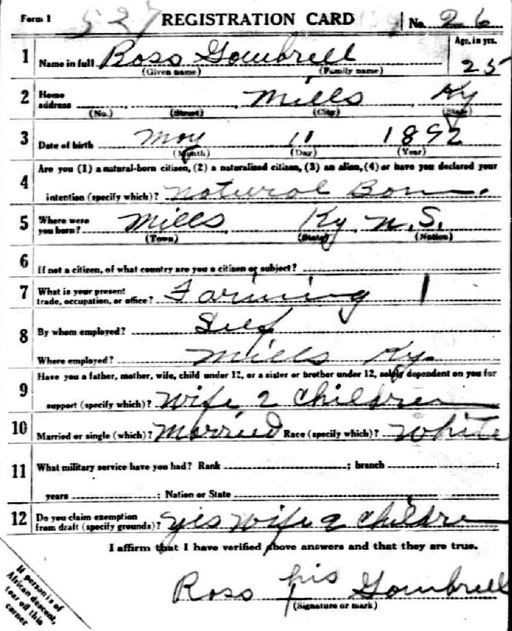 Form 1 527 REGISTRATION CARD No. 26
1 Name in full Ross Gombrell Age, in yrs. 25
(Given name) (Family name)
2 Home address Mills Ky
(No.) (Street) (City) (State)
3 Date of birth May 11 1892
(Month) (Day) (Year)
4 Are you (1) a natural-born citizen, (2) a naturalized citizen, (3) an alien, (4) or have you declared your
intention (specify which)? Natural Born.
5 Where were you born? Mills Ky U.S.
(Town) (State) (Nation)
6 If not a citizen, of what country are you a citizen or subject?
7 What is your present trade, occupation, or office? Farming 1
8 By whom employed? Self
Where employed? Mills Ky.
9 Have you a father, mother, wife, child under 12, or a sister or brother under 12, solely dependent on you for
support (specify which)? Wife 2 children
10 Married or single (which)? Married Race (specify which)? White
11 What military service have you had? Rank ; branch ;
years ; Nation or State
12 Do you claim exemption from draft (specify grounds)? Yes Wife 2 Childre
I affirm that I have verified above answers and that they are true.
Ross his Gombrell
(Signature or mark)
If person is of
African descent,
tear off this
corner